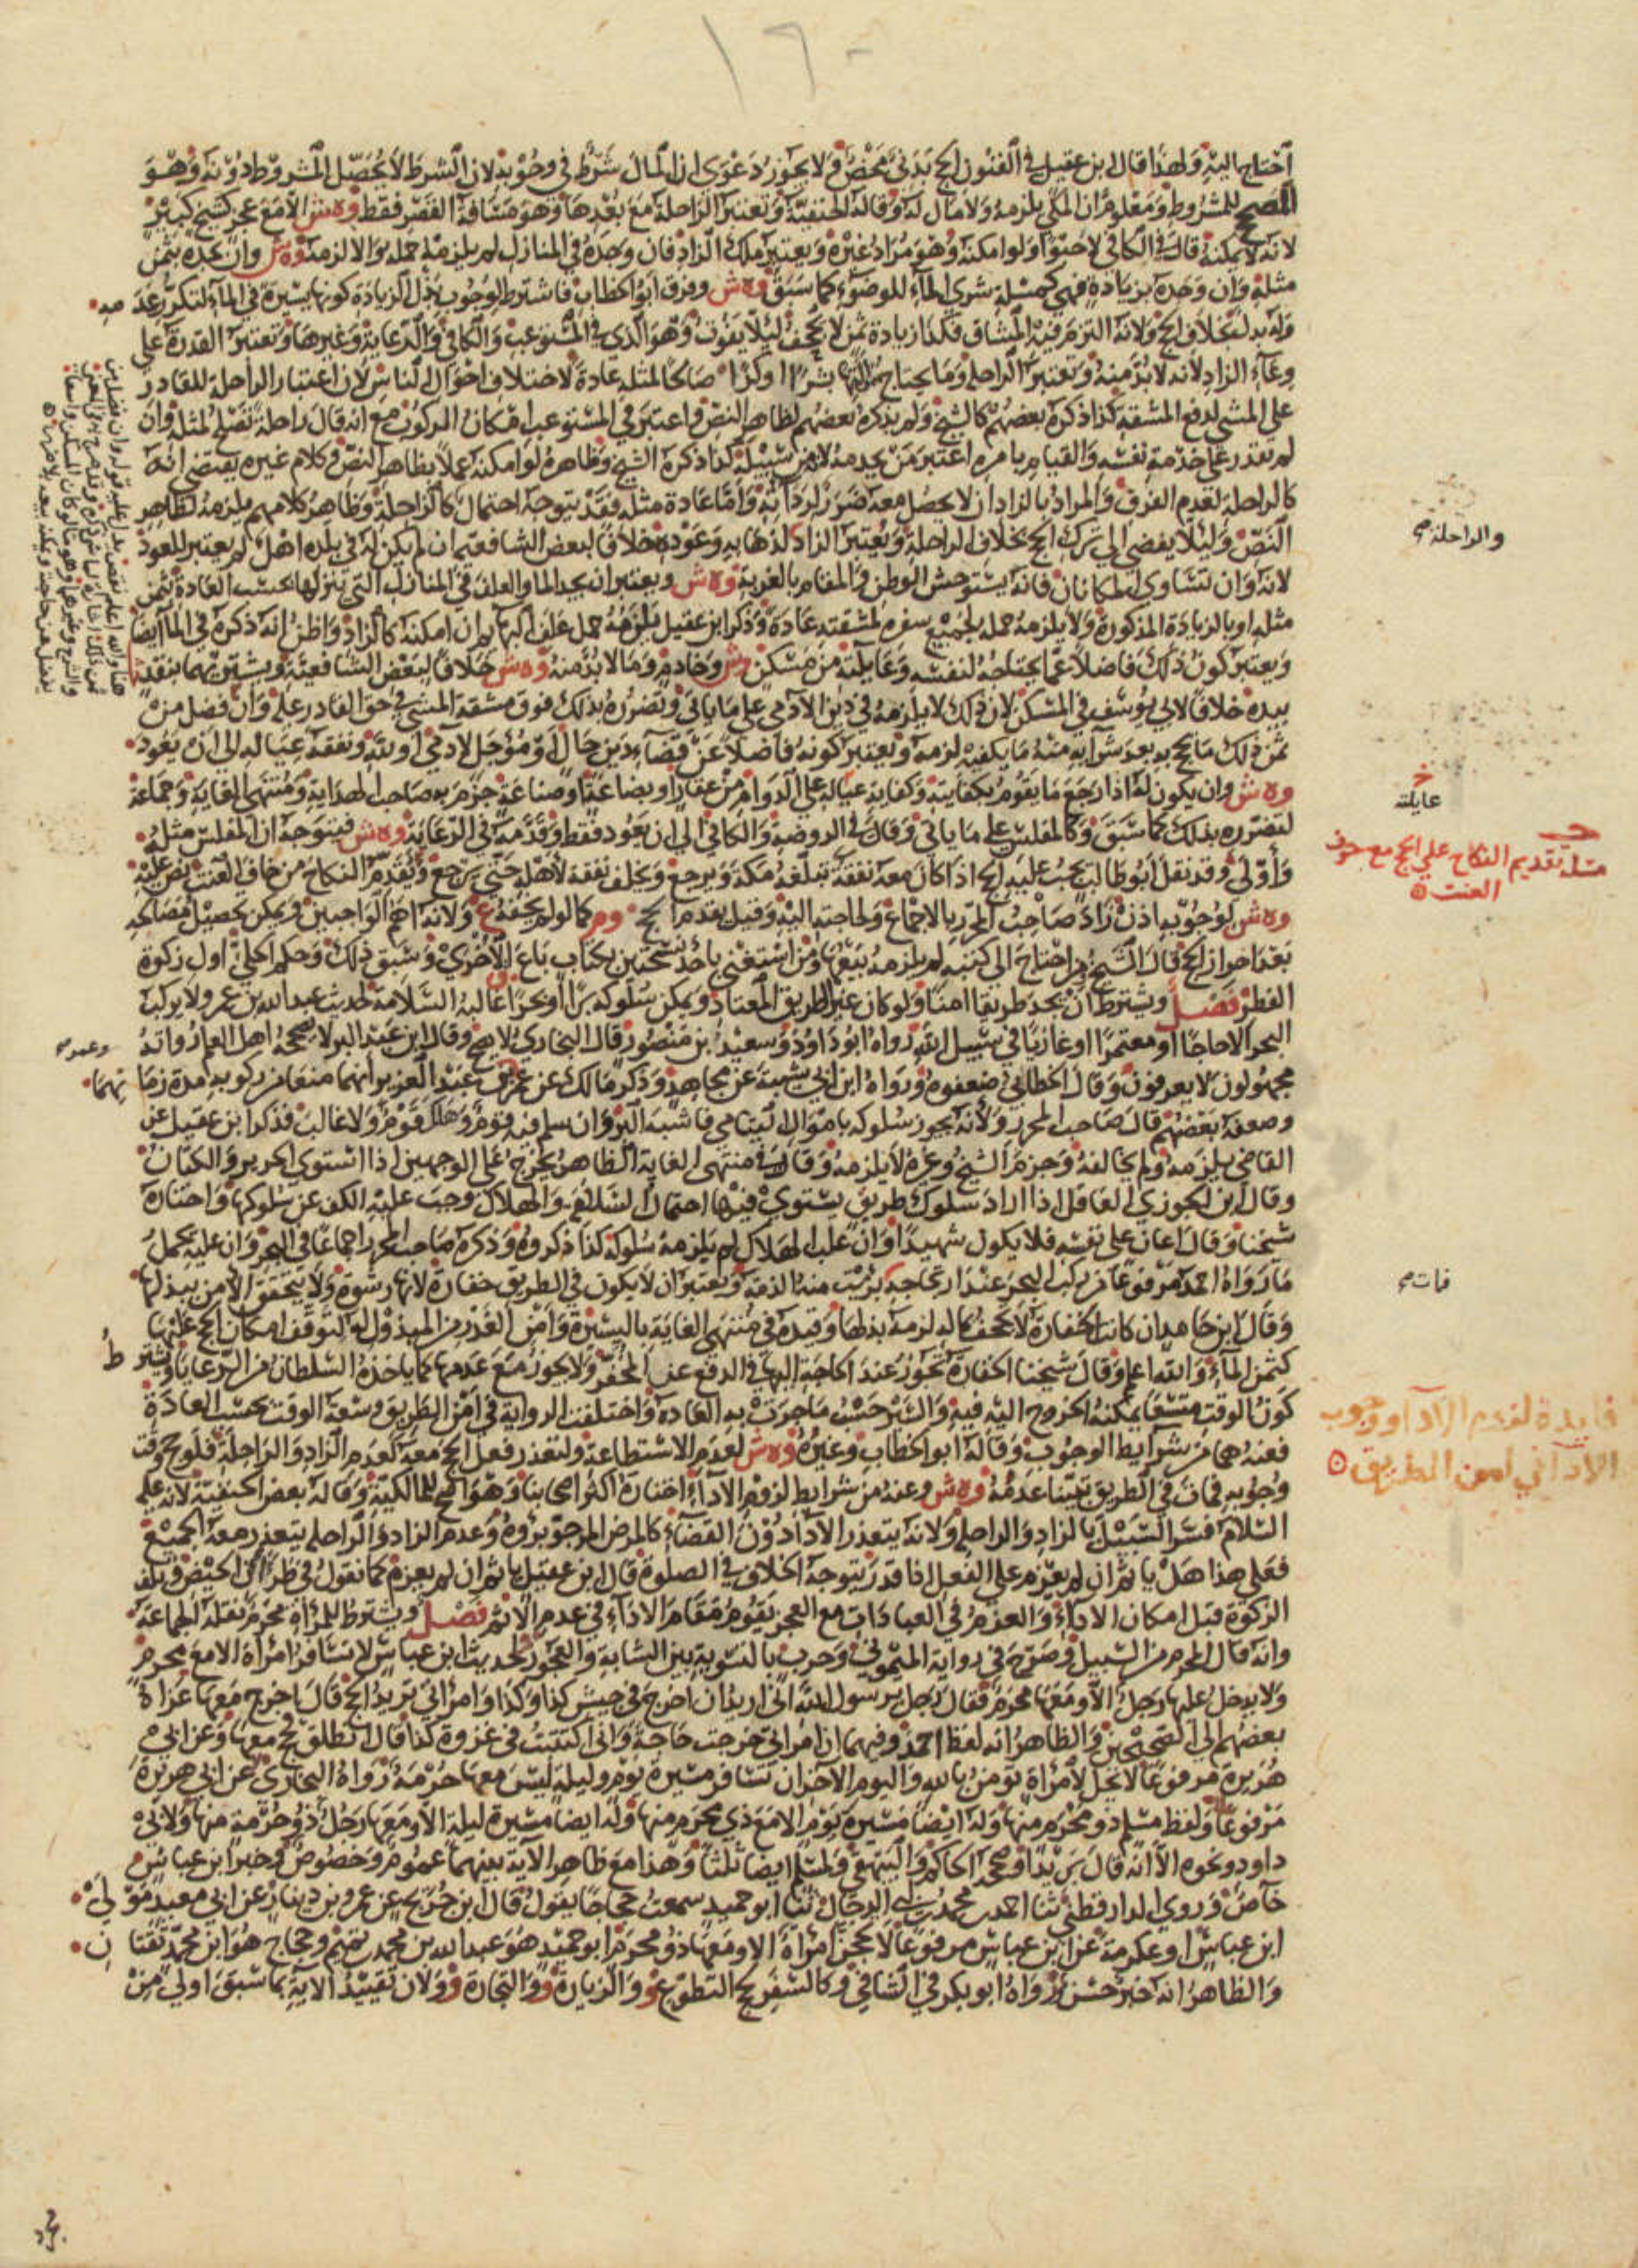 ١٦٠
احتاج اليه ولهذا قال ابن عقيل في الفنون الحج بدني محض ولا يجوز دعوى ان المال شرط في وجوبه لان الشرط لا يحصل المشروط دونه وهو
المصحح للمشروط ومعلوم ان المكي يلزمه ولا مال له وقاله الحنفية وتعتبر الراحلة مع بعدها وهو مسافة القصر فقط وه ش الا مع عجز كشيخ كبير
لانه لا يمكنه قال في الكافي لا حبوا ولو امكنه وهو مراد غيره ويعتبر ملك الزاد فان وجده في المنازل لم يلزمه حمله والا لزمه وه ش وان يجده بثمن
مثله وان وجده بزيادة فهي كمسلة شرى الماء للوضوء كما سبق وه ش وفرق ابو الخطاب فاشترط لوجوب بذل الزيادة كونها يسيرة في الماء لتكرر عدمه
وله بدل بخلاف الحج ولانه التزم فيه المشاق فكذا زيادة ثمن لا يجحف ليلا يفوت وهو الذي في المستوعب والكافي والرعاية وغيرها وتعتبر القدرة على
وعاء الزاد لانه لا بد منه وتعتبر الراحلة وما يحتاج اليها بشرا او كرا صالحا لمثله عادة لاختلاف احوال الناس لان اعتبار الراحلة للقادر
على المشي لدفع المشقة كذا ذكره بعضهم كالشيخ ولم يذكره بعضهم لظاهر النص واعتبر في المستوعب امكان الركوب مع انه قال راحلة تصلح لمثله وان
لم يقدر على خدمة نفسه والقيام بامره اعتبر من يخدمه لانه من سبيله كذا ذكره الشيخ وظاهره لو امكنه عملا بظاهر النص وكلام غيره يقتضي انه
كالراحلة لعدم الفرق والمراد بالزاد ان لا يحصل معه ضرر لرداءته واما عادة مثله فقد يتوجه احتمال كالراحلة وظاهر كلامهم يلزمه لظاهر
النص وليلا يفضي الى ترك الحج بخلاف الراحلة ويعتبر الزاد لذهابه وعوده خلافا لبعض الشافعية ان لم يكن له في بلده اهل لم يعتبر للعود
لانه وان تساوى المكانان فانه يستوحش الوطن والمقام بالغربة وه ش ويعتبر ان يجد الماء والعلف في المنازل التي ينزلها بحسب العادة بثمن
مثله او بالزيادة المذكورة ولا يلزمه حمله لجميع سفره لمشقته عادة وذكر ابن عقيل يلزمه حمل علف البهايم ان امكنه كالزاد واظن انه ذكره في الماء ايضا
ويعتبر كون ذلك فاضلا عما يحتاجه لنفسه وعايلته من مسكن وش وخادم وما لا بد منه وه ش خلافا لبعض الشافعية ويشتريهما بنقد
بيده خلافا لابي يوسف في المسكن لان ذلك لا يلزمه في دين الآدمي على ما ياتي وتضرره بذلك فوق مشقة المشي في حق القادر عليه وان فضل من
ثمن ذلك ما يحج به بعد شرايه منه ما يكفيه لزمه ويعتبر كونه فاضلا عن قضاء دين حال او مؤجل لآدمي او لله ونفقة عياله الى ان يعود
وه ش وان يكون له اذا رجع ما يقوم بكفايته وكفاية عياله على الدوام من عقار او بضاعة او صناعة جزم به صاحب الهداية ومنتهى الغاية وجماعة
لتضرره بذلك كما سبق وكالمفلس على ما ياتي وقال في الروضة والكافي الى ان يعود فقط وقدمه في الرعاية وه ش فيتوجه ان المفلس مثله
وأولى وقد نقل ابو طالب يجب عليه الحج اذا كان معه نفقة تبلغه مكة ويرجع ويخلف نفقة لاهله حتى يرجع ويقدم النكاح من خاف العنت نص عليه
وه ش لوجوبه اذن زاد صاحب المحرر بالاجماع ولحاجته اليه وقيل يقدم الحج وم كما لو لم يخفه ع ولانه اهم الواجبين ويمكن تحصيل مصالحه
بعد احراز الحج قال الشيخ من احتاج الى كتبه لم يلزمه بيعها ومن استغنى باحد نسختين بكتاب باع الاخرى وسبق ذلك وحكم الحلي اول زكوة
الفطر فصل ويشترط ان يجد طريقا امنا ولو كان غير الطريق المعتاد ويمكن سلوكه برا او بحرا غالبه السلامة لحديث عبدالله بن عمر ولا يركب
البحر الا حاجا او معتمرا او غازيا في سبيل الله رواه ابو داود وسعيد بن منصور قال البخاري لا يصح وقال ابن عبد البر لا يصححه اهل العلم رواته
مجهولون لا يعرفون وقال الخطابي ضعفوه ورواه ابن ابي شيبة عن مجاهد وذكر مالك عن عمر وعمر بن عبد العزيز انهما منعا من ركوبه مدة زمانهما
وضعفه بعضهم قال صاحب المحرر ولانه يجوز سلوكه باموال اليتامى فاشبه البر وان سلم فيه قوم وهلك قوم ولا غالب فذكر ابن عقيل عن
القاضي يلزمه ولم يخالفه وجزم الشيخ وغيره لا يلزمه وقال في منتهى الغاية الظاهر يخرج على الوجهين اذا استوى الحرير والكتان
وقال ابن الجوزي العاقل اذا اراد سلوك طريق يستوي فيها احتمال السلامة والهلاك وجب عليه الكف عن سلوكها واختاره
شيخنا وقال اعان على نفسه فلا يكون شهيدا وان غلب الهلاك لم يلزمه سلوكه كذا ذكروه وذكره صاحب المحرر اجماعا في البحر وان عليه يحمل
ما رواه احمد مرفوعا من ركب البحر عند ارتجاجه برئت منه الذمة ويعتبر ان لا يكون في الطريق خفارة لانها رشوة ولا يتحقق الامن ببذلها
وقال ابن حامد ان كانت الخفارة لا تجحف بماله لزمه بذلها وقيده في منتهى الغاية باليسيرة وامن الغدر من المبذول له لتوقف امكان الحج عليها
كثمن الماء والله اعلم وقال شيخنا الخفارة تجوز عند الحاجة اليها في الدفع عن المخفر ولا يجوز مع عدمها كما ياخذه السلطان من الرعايا ويشترط
كون الوقت متسعا يمكنه الخروج اليه فيه والسير حسب ما جرت به العادة واختلفت الرواية في امن الطريق وسعة الوقت بحسب العادة
فعنه هما من شرايط الوجوب وقاله ابو الخطاب وغيره وه ش لعدم الاستطاعة ولتعذر فعل الحج معه كعدم الزاد والراحلة فلو حج وقت
وجوبه فمات في الطريق تبينا عدمه وه ش وعنه من شرايط لزوم الاداء اختاره اكثر اصحابنا وهو اصح للمالكية وقاله بعض الحنفية لانه عليه
السلام فسر السبيل بالزاد والراحلة ولانه يتعذر الاداء دون القضاء كالمرض المرجو برؤه وعدم الزاد والراحلة يتعذر معه الجميع
فعلى هذا هل ياثم ان لم يعزم على الفعل اذا قدر يتوجه الخلاف في الصلوة قال ابن عقيل ياثم ان لم يعزم كما نقول في طرآن الحيض وتلف
الزكوة قبل امكان الاداء والعزم في العبادات مع العجز يقوم مقام الاداء في عدم الاثم فصل ويشترط للمرأة محرم نقله الجماعة
وانه قال المحرم من السبيل وصرح في رواية الميموني وحرب بالتسوية بين الشابة والعجوز لحديث ابن عباس لا تسافر امرأة الا مع محرم
ولا يدخل عليها رجل الا ومعها محرم فقال رجل يرسول الله اني اريد ان اخرج في جيش كذا وكذا وامرأتي تريد الحج قال اخرج معها عزاه
بعضهم الى الصحيحين والظاهر انه لفظ احمد وفيهما ان امرأتي خرجت حاجة واني اكتتبت في غزوة كذا قال انطلق فحج معها وعن ابي
هريرة مرفوعا لا يحل لامرأة تؤمن بالله واليوم الآخر ان تسافر مسيرة يوم وليلة ليس معها حرمة رواه البخاري عن ابي هريرة
مرفوعا ولفظ مسلم ذو محرم منها وله ايضا مسيرة يوم الا مع ذي محرم منها وله ايضا مسيرة ليلة الا ومعها رجل ذو حرمة منها ولابي
داود ونحوه الا انه قال بريدا وصححه الحاكم والبيهقي ولمسلم ايضا ثلثا وهذا مع ظاهر الآية بينهما عموم وخصوص وخبر ابن عباس
خاص وروى الدارقطني ثنا احمد بن محمد بن ابي الرجال ثنا ابو حميد سمعت حجاجا يقول قال ابن جريج عن عمرو بن دينار عن ابي معبد مولى
ابن عباس او عكرمة عن ابن عباس مرفوعا لا تحجن امرأة الا ومعها ذو محرم ابو حميد هو عبد الله بن محمد بن تميم وحجاج هو ابن محمد ثقتان
والظاهر انه خبر حسن ورواه ابو بكر في الشافي وكالسفر لحج التطوع و والزيارة وو والتجارة وو ولان تقييد الآية بما سبق اولى من
والراحلة صح
خ
عايلته
مسلة تقديم النكاح على الحج مع خوف
العنت
وعمر صح
فات صح
فايدة لعدم الاداء ووجوب
الاداء في امن الطريق